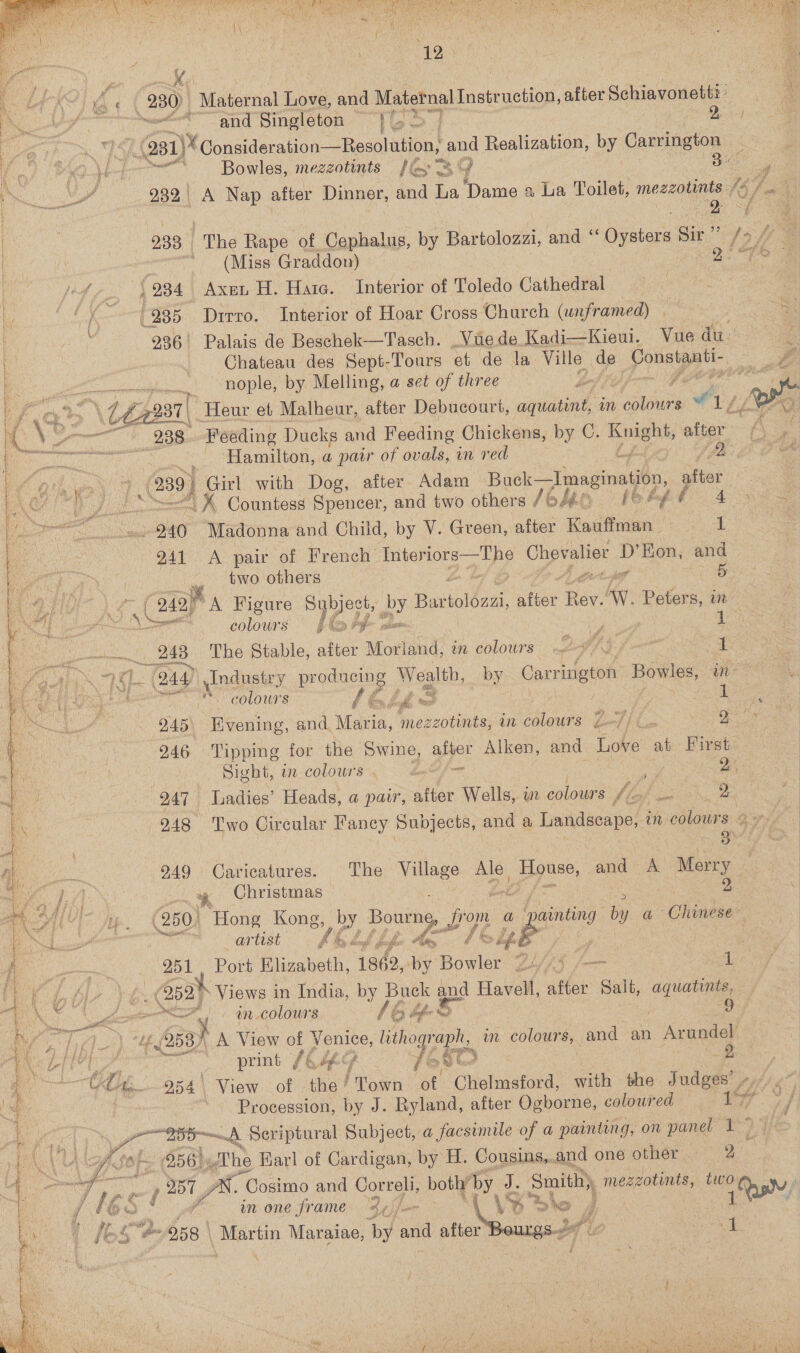 12
230 Maternal Love, and Maternal Instruction, after Schiavonetti
and Singleton 2
231 Consideration—Resolution, and Realization, by Carrington
Bowles, mezzotints 3
232 A Nap after Dinner, and La Dame a La Toilet, mezzotints
2
233 The Rape of Cephalus, by Bartolozzi, and “Oysters Sir”
(Miss Graddon) 2
234 Axel H. Haig. Interior of Toledo Cathedral
235 Ditto. Interior of Hoar Cross Church (unframed)
236 Palais de Beschek—Tasch. Vüe de Kadi—Kieui. Vue du
Chateau des Sept-Tours et de la Ville de Constanti-
nople, by Melling, a set of three
237 Heur et Malheur, after Debucourt, aquatint, in colours 1
238 Feeding Ducks and Feeding Chickens, by C. Knight, after
Hamilton, a pair of ovals, in red 2
239 Girl with Dog, after Adam Buck—Imagination, after
Countess Spencer, and two others 4
240 Madonna and Child, by V. Green, after Kauffman 1
241 A pair of French Interiors—The Chevalier D’Eon, and
two others 5
242 A Figure Subject, by Bartolozzi, after Rev. W. Peters, in
colours 1
243 The Stable, after Morland, in colours 1
244 Industry producing Wealth, by Carrington Bowles, in
colours 1
245 Evening, and Maria, mezzotints, in colours 2
246 Tipping for the Swine, after Alken, and Love at First
Sight, in colours 2
247 Ladies’ Heads, a pair, after Wells, in colours 2
248 Two Circular Fancy Subjects, and a Landscape, in colours
3
249 Caricatures. The Village Ale House, and A Merry
Christmas 2
250 Hong Kong, by Bourne, from a painting by a Chinese
artist
251 Port Elizabeth, 1862, by Bowler 1
252 Views in India, by Buck and Havell, after Salt, aquatints,
in colours 9
253 A View of Venice, lithograph, in colours, and an Arundel
print 2
254 View of the Town of Chelmsford, with the Judges’
Procession, by J. Ryland, after Ogborne, coloured 1
255 A Scriptural Subject, a facsimile of a painting, on panel 1
256 The Earl of Cardigan, by H. Cousins, and one other 2
257 N. Cosimo and Correli, both by J. Smith, mezzotints, two
in one frame 1
258 Martin Maraiae, by and after Bourgs 1